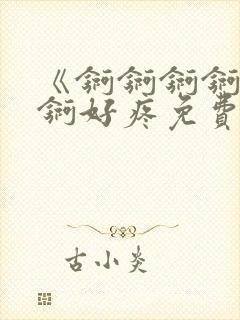 《锕锕锕锕
锕好疼免費
古小炎